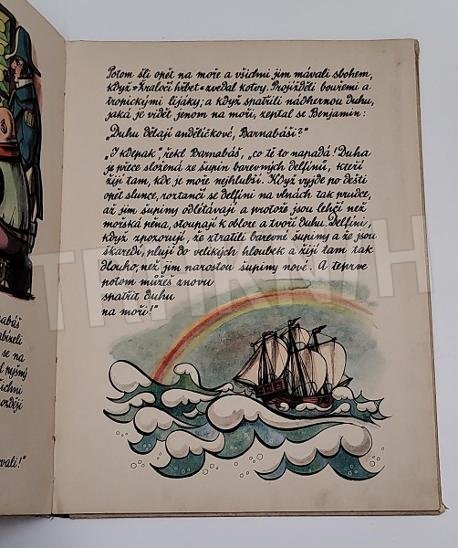 nabáš
se na
pyšný
"
Potom šli opět na moře a všichni jim mávali sbohem,
když »Kraločí hřbet« zvedal kotvy. Projížděli bouřemi a
tropickými lijáky; a když spatřili nádhernou duhu,
jaká je vidět jenom na moři, zeptal se Benjamin:
„Duhu dělají andělíčkové, Barnabáši?"
„I kdepak" řekl Barnabáš, „co tě to napadá! Duha
je přece složená ze šupin barevných delfínů, kteří
žijí tam, kde je moře nejhlubší. Když vyjde po dešti
opět slunce, roztančí se delfíni na vlnách tak prudce,
až jim šupiny odlétávají a protože jsou lehčí než
mořská pěna, stoupají k obloze a tvoří duhu. Delfíni,
když zpozorují, že ztratili barevné šupiny a že jsou
škaredí, plují do velikých hloubek a žijí tam tak
dlouho, než jim narostou šupiny nové. A teprve
potom můžeš znovu
spatřit duhu
na moři!"